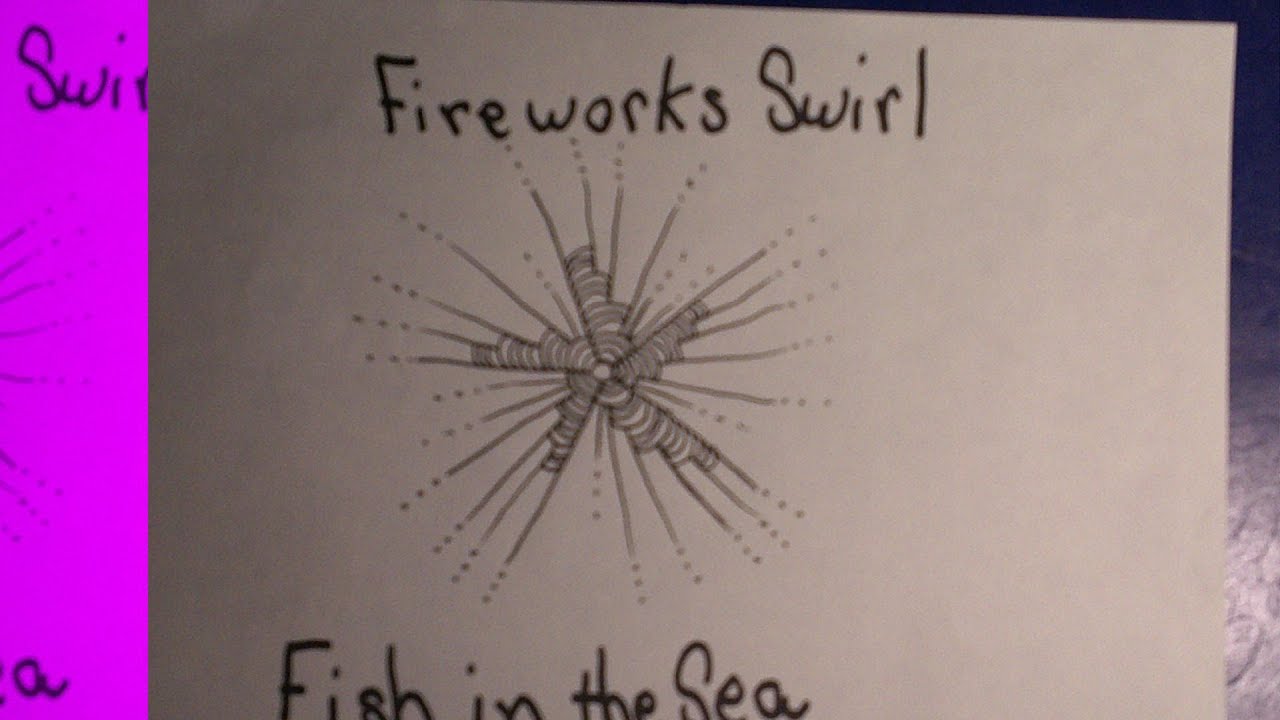 Swir
Fireworks Swirl
ea
Fish in the Sea